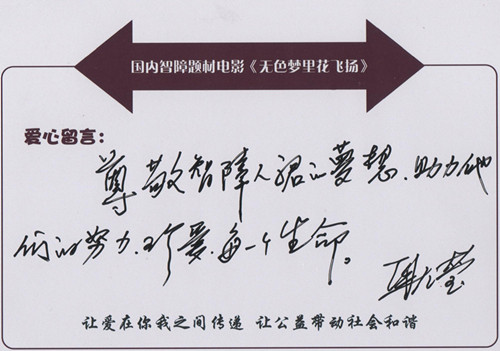 国内智障题材电影《无色梦里花飞扬》
爱心留言：
尊敬智障人群的夢想、助力他
们的努力、珍爱每一个生命。
让爱在你我之间传递 让公益带动社会和谐